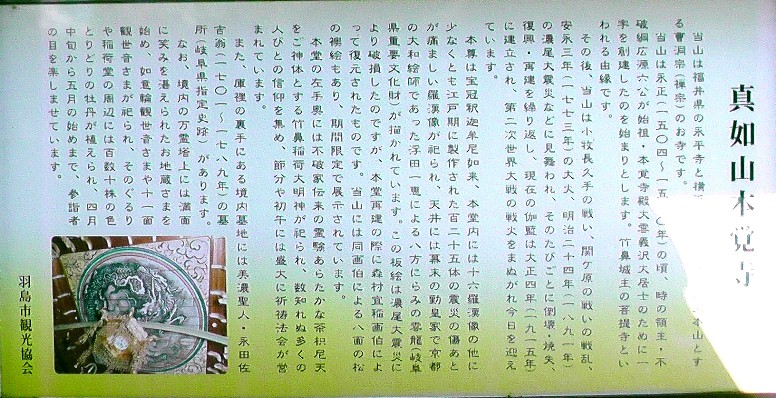 真如山本覚寺
当山は福井県の永平寺と横
本山とす
る曹洞宗(禅宗)のお寺です。
当山は永正(一五〇四〜一五
〇年)の頃、時の領主・不
破綱広源六公が始祖・本覚寺殿大雲義沢大居士のために一
宇を創建したのを始まりとします。竹鼻城主の菩提寺とい
われる由縁です。
その後、当山は小牧長久手の戦い、関ケ原の戦いの戦乱、
安永三年(一七七三年)の大火、明治二十四年(一八九一年)
の濃尾大震災などに見舞われ、そのたびごとに倒壊・焼失、
復興・再建を繰り返し、現在の伽藍は大正四年(一九一五年)
に建立され、第二次世界大戦の戦火をまぬがれ今日を迎え
ています。
本尊は宝冠釈迦牟尼如来、本堂内には十六羅漢像の他に
少なくとも江戸期に製作された百二十五体の震災の傷あと
が痛ましい羅漢像が祀られ、天井には幕末の勤皇家で京都
の大和絵師であった浮田一恵による八方にらみの雲龍(岐阜
県重要文化財)が描かれています。この板絵は濃尾大震災に
より破損したのですが、本堂再建の際に森村宜稲画伯によ
って復元されたものです。当山には同画伯による八面の松
の襖絵もあり、期間限定で展示されています。
本堂の左手奥には不破家伝来の霊験あらたかな荼枳尼天
をご神体とする竹鼻稲荷大明神が祀られ、数知れぬ多くの
人びとの信仰を集め、節分や初午には盛大に祈祷法会が営
まれています。
また、庫裡の裏手にある境内墓地には美濃聖人・永田佐
吉翁(一七〇一〜一七八九年)の墓
所(岐阜県指定史跡)があります。
なお、境内の万霊塔上には満面
に笑みを湛えられたお地蔵さまを
始め、如意輪観世音さまや十一面
観世音さまが祀られ、そのぐるり
や稲荷堂の周辺には百数十株の色
とりどりの牡丹が植えられ、四月
中旬から五月の始めまで、参詣者
の目を楽しませています。
羽島市観光協会